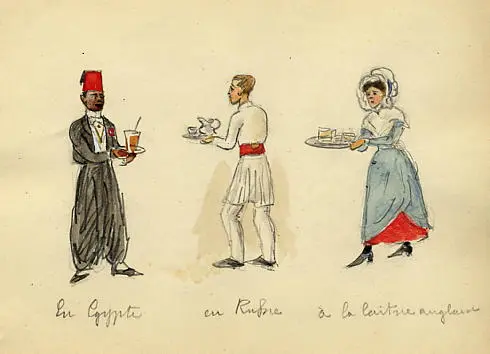 En Egypte en Russie à la laitière anglaise